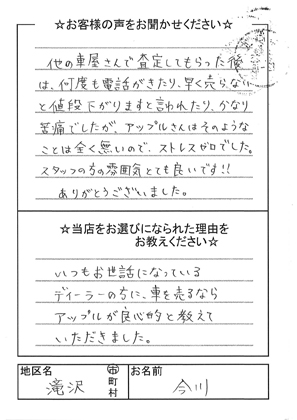 ☆お客様の声をお聞かせください☆
他の車屋さんで査定してもらった後
は、何度も電話がきたり、早く売らない
と値段下がりますと言われたり、かなり
苦痛でしたが、アップルさんはそのような
ことは全く無いので、ストレスゼロでした。
スタッフの方の雰囲気とても良いです!!
ありがとうございました。
☆当店をお選びになられた理由を
お教えください☆
いつもお世話になっている
ディーラーの方に、車を売るなら
アップルが良心的と教えて
いただきました。
地区名
滝沢
市
町
村
お名前
今川